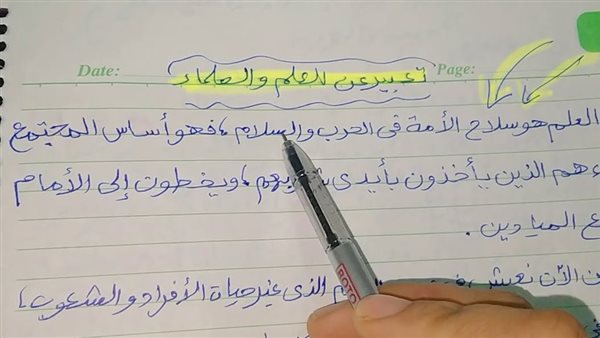 Date: Page:
تعبير عن العلم والعلماء
العلم هو سلاح الأمة فى الحرب والسلام، فهو أساس المجتمع
هم الذين يأخذون بأيدى ويخطون إلى الأمام
الميادين.
الآن نعيش الذى غير حيات الأفراد والشعوب،
ROTO